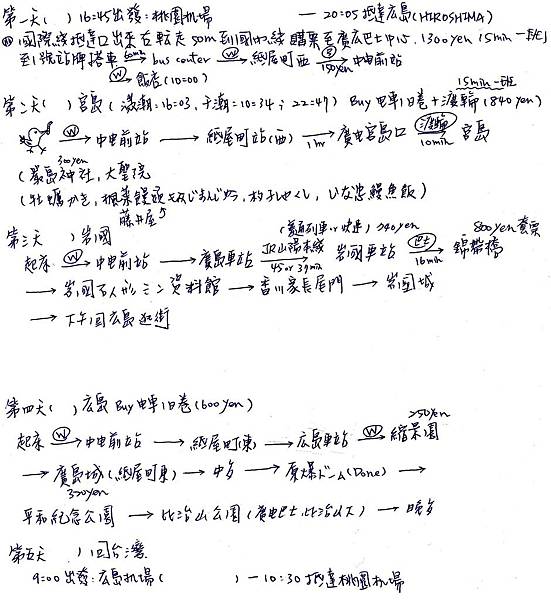 第一天( ) 16:45出發:桃園机場 — 20:05抵達広島(HIROSHIMA)
國際線抵達口出來右轉走50m到國內線購票至廣広巴士中心,1300yen 15min一班
至1號站牌搭車 → bus center Ⓦ→ 紙屋町西 150yen→ 中電前站
Ⓦ→ 飯店(10:00)
15min一班
第二天( )宮島(滿潮=16:03,干潮=10:34;22:47) Buy 电車1日卷+渡輪(840yen)
Ⓦ→ 中电前站 → 紙屋町站(西) 1hr→ 廣电宮島口 渡輪 10min→ 宮島
300yen
(嚴島神社,大聖院
(牡蠣かき,楓葉饅頭もみじまんじゅう,杓子しゃくし,いな忠鰻魚飯)
藤井屋
第三天 )岩國 (普通列車or快速) 740yen 800yen套票
起床 Ⓦ→ 中电前站 → 廣島車站 JR山陽本線 45or39min→ 岩國車站 巴士 16min→ 錦帶橋
→ 岩国石人形ミニ資料館 → 香川家長屋門 → 岩国城
→ 下午回広島逛街
第四天( )広島 Buy 电車1日卷(600yen)
250yen
起床 Ⓦ→ 中电前站 → 紙屋町(東) → 広島車站 Ⓦ→ 縮景園
→ 廣島城(紙屋町東) → 中乡 → 原爆ドーム(Dome) →
370yen
平和紀念公園 → 比治山公園(廣电巴士,比治山下) → 晚乡
第五天 )回台灣
9:00出發:広島机場( ) — 10:30抵達桃園机場